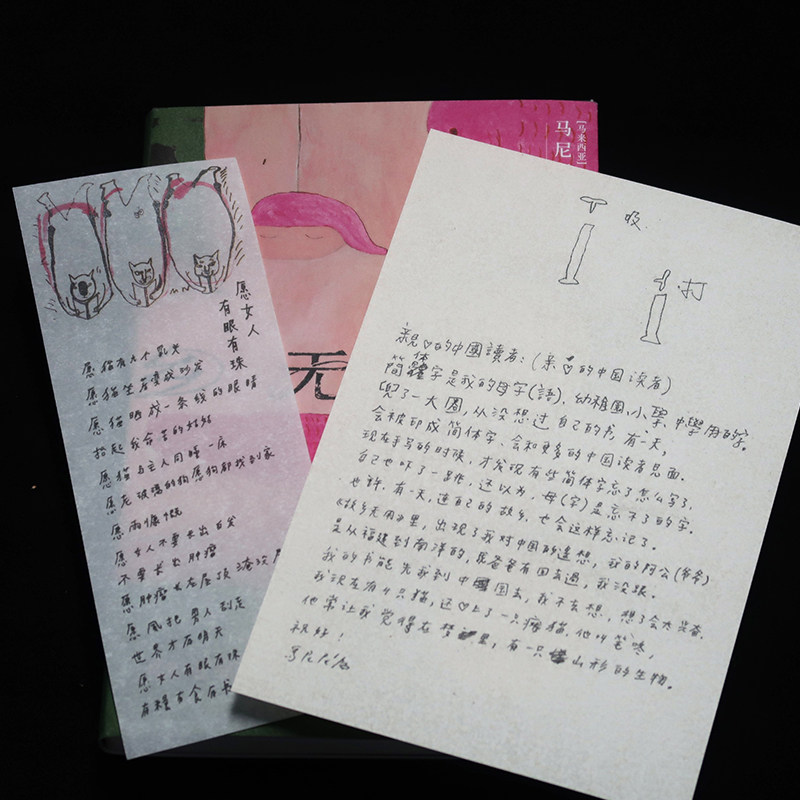 [马来西亚]
马尼
无
愿女人
有眼有珠
愿猫有九个乳头
愿猫坐着变成沙发
愿猫眯成一条线的眼睛
拾起我命苦的
愿猫与主人同睡一床
愿
愿雨慷慨
愿女人不要长出白发
不要长出肿瘤
愿肿瘤长在屋顶 淹没
愿风把男人刮走
世界才有晴天
愿女人有眼有珠
有粮有食有
吸
打
親♡的中國讀者:(亲♡的中国读者)
简体字是我的母字(語),幼稚園,小學,中學用的字。
兜了一大圈,从没想过自己的书,有一天,
会被印成简体字,会和更多的中国读者见面。
现在手写的时候,才发现有些简体字忘了怎么写了,
自己也吓了一跳,还以为,母(字)是忘不了的字。
也许,有一天,连自己的故乡,也会这样忘记了。
《故乡无用》里,出现了我对中国的遥想,我的阿公(爷爷)
是从福建到南洋的,我爸爸有回去过,我没跟。
我的书能先我到中国去,我不去想,想了会太兴奋。
我现在有4只猫,还♡上了一只病猫,他叫笔咚,
他常让我觉得在梦里,有一只山形的生物。
祝好!
马尼尼为